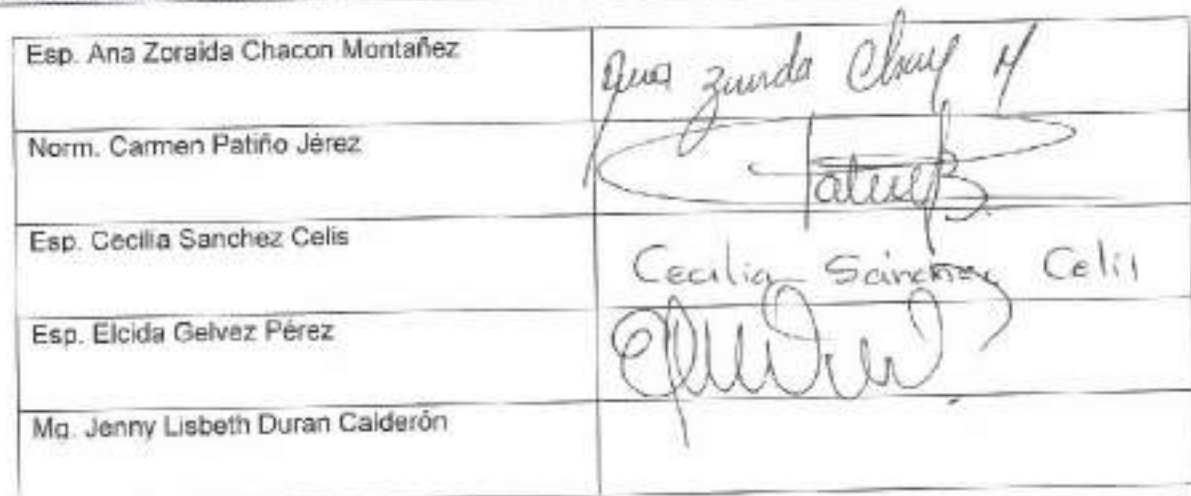 Esp. Ana Zoraida Chacon Montañez
Norm. Carmen Patiño Jérez
Esp. Cecilia Sanchez Celis
Cecilia Sánchez Celis
Esp. Elcida Gelvez Pérez
Mg. Jenny Lisbeth Duran Calderón